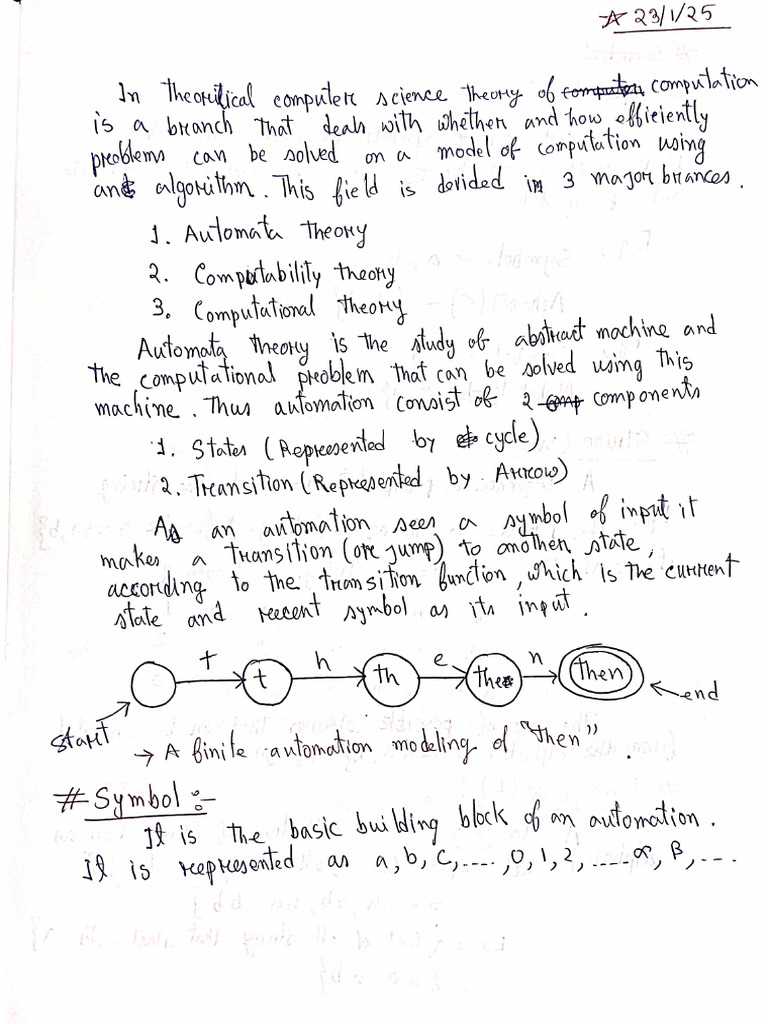 ☆ 23/1/25
In theoritical computer science theory of computation
is a branch that deals with whether and how efficiently
problems can be solved on a model of computation using
an algorithm. This field is devided in 3 major brances.
1. Automata Theory
2. Computability theory
3. Computational theory
Automata theory is the study of abstract machine and
the computational problem that can be solved using this
machine. Thus automation consist of 2 components
1. States (Represented by cycle)
2. Transition (Represented by Arrow)
As an automation sees a symbol of input it
makes a transition (or jump) to another state,
according to the transition function, which is the current
state and recent symbol as its input.
t h e n
t th the then
end
start
→ A finite automation modeling of "then".
# Symbol :-
It is the basic building block of an automation.
It is represented as a, b, c, ...., 0, 1, 2, .... α, β, ....